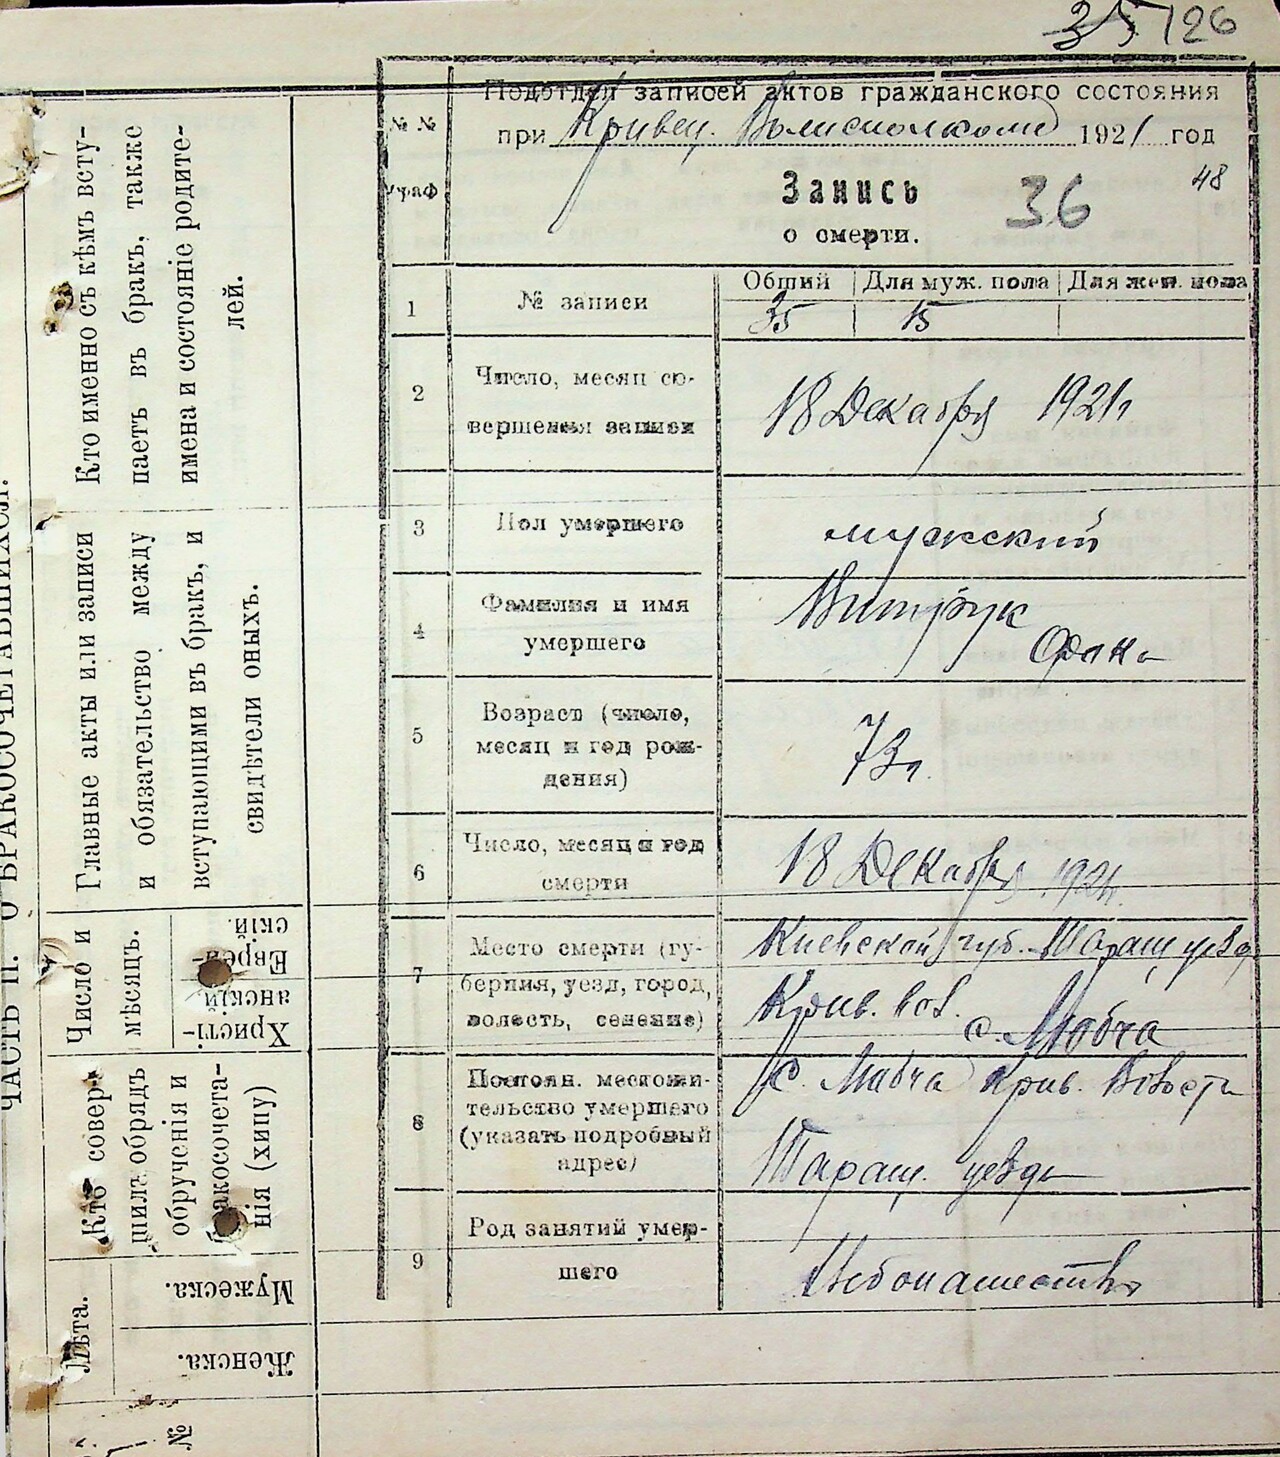 35 126
Подотдел записей актов гражданского состояния
при Кривец. Волисполкоме 1921 год
№ №
граф
Запись
о смерти.
36
48
1 № записи
Общий Для муж. пола Для жен. пола
35 15
2 Число, месяц со-
вершения записи
18 Декабря 1921г
3 Пол умершего мужской
4 Фамилия и имя
умершего
Витрук
5 Возраст (число,
месяц и год рож-
дения)
73л.
6 Число, месяц и год
смерти
18 Декабря 1921г.
7 Место смерти (гу-
берния, уезд, город,
волость, селение)
Киевской губ. Таращ уезда
Крив. вол.
с. Любча
8 Постоян. местожи-
тельство умершего
(указать подробный
адрес)
с. Любча Крив. Волости
Таращ. уезда
9 Род занятий умер-
шего
Хлебопашество
ЧАСТЬ II. О БРАКОСОЧЕТАВШИХСЯ.
Кто именно съ кѣмъ всту-
паетъ въ бракъ, также
имена и состояніе родите-
лей.
Главные акты или записи
и обязательство между
вступающими въ бракъ, и
свидѣтели оныхъ.
Число и
мѣсяцъ.
Еврей-
скій.
Христі-
анскій.
Кто совер-
шилъ обрядъ
обрученія и
бракосочета-
нія (хипу)
Лѣта.
Мужеска.
Женска.
№